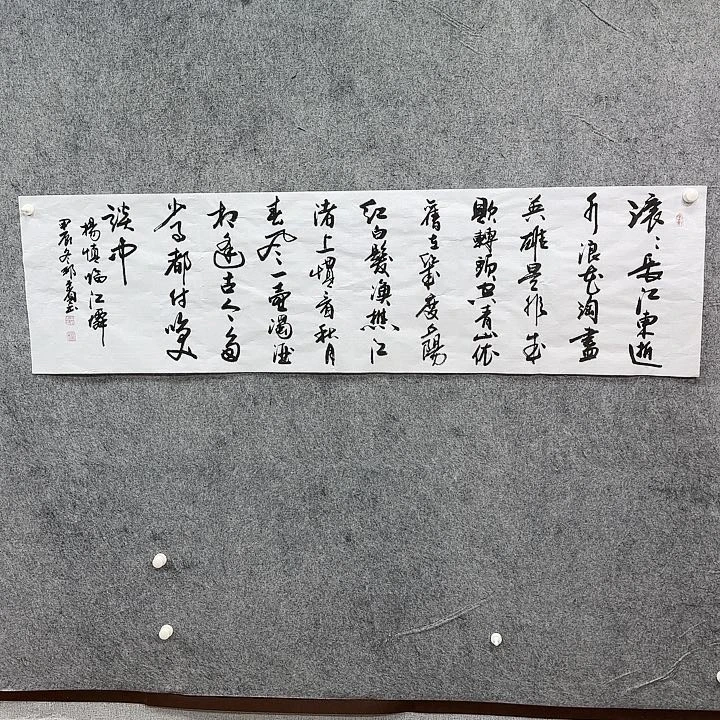 滚〻長江東逝
水浪花淘盡
英雄是非成
敗轉頭空青山依
舊在幾度夕陽
紅白髮漁樵江
渚上慣看秋月
春風一壺濁酒
相逢古今多
少事都付笑
談中
楊慎臨江僊
甲辰冬